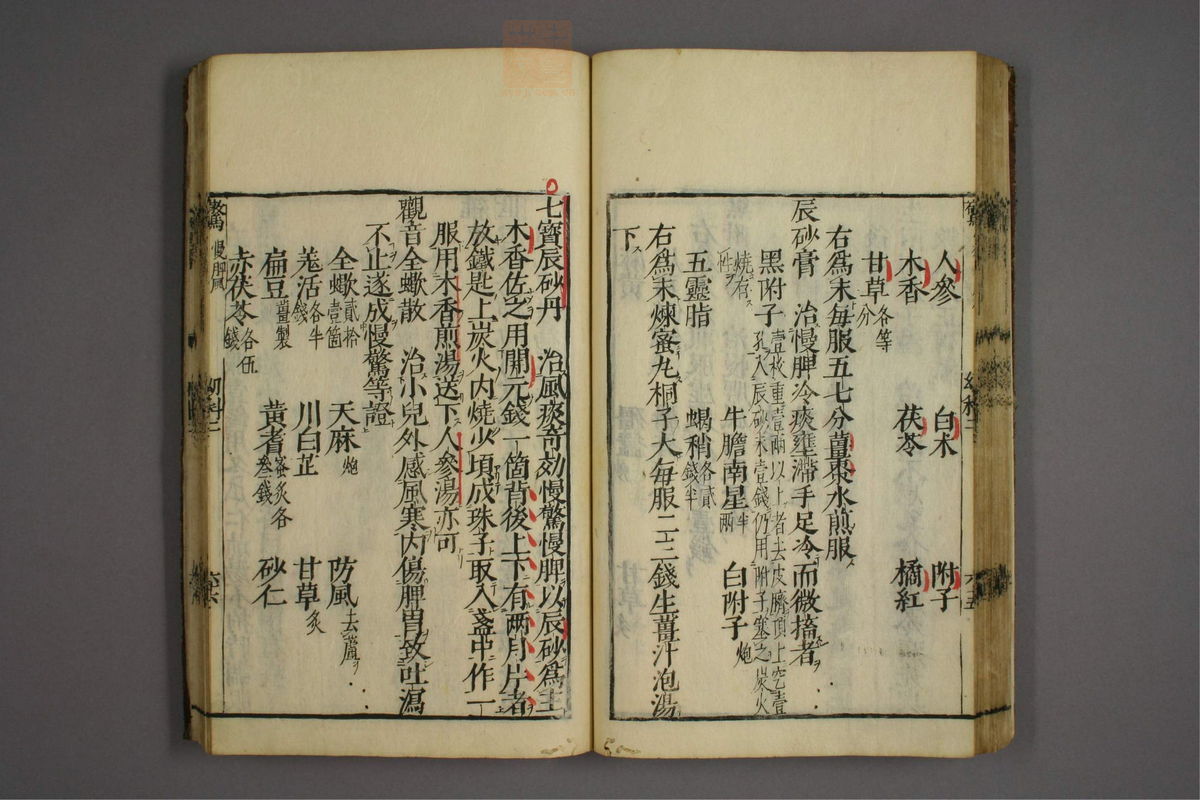 人參 白朮 附子
木香 茯苓 橘紅
甘草各等分
右為末每服五七分薑棗水煎服
辰砂膏 治慢脾冷痰壅滯手足冷而微搐者
黑附子壹枚重壹兩以上者去皮臍頂上空壹孔入辰砂末壹錢仍用附子塞之炭火燒存性 牛膽南星半兩 白附子炮
五靈脂 蝎稍各貳錢半
右為末煉蜜丸桐子大每服二三錢生薑汁泡湯
下
七寶辰砂丹 治風痰奇効慢驚慢脾以辰砂為主
木香佐之用開元錢一箇背後上下有兩月片者
放鐵匙上炭火內燒少頃成珠子取入盞中作一
服用木香煎湯送下人參湯亦可
觀音全蠍散 治小兒外感風寒內傷脾胃致吐瀉
不止遂成慢驚等證
全蠍貳拾壹箇 天麻炮 防風去蘆
羌活各半錢 川白芷 甘草炙
扁豆薑製 黃耆蜜炙各叁錢 砂仁
赤茯苓各伍錢
驚 慢脾風 幼科二 六十六